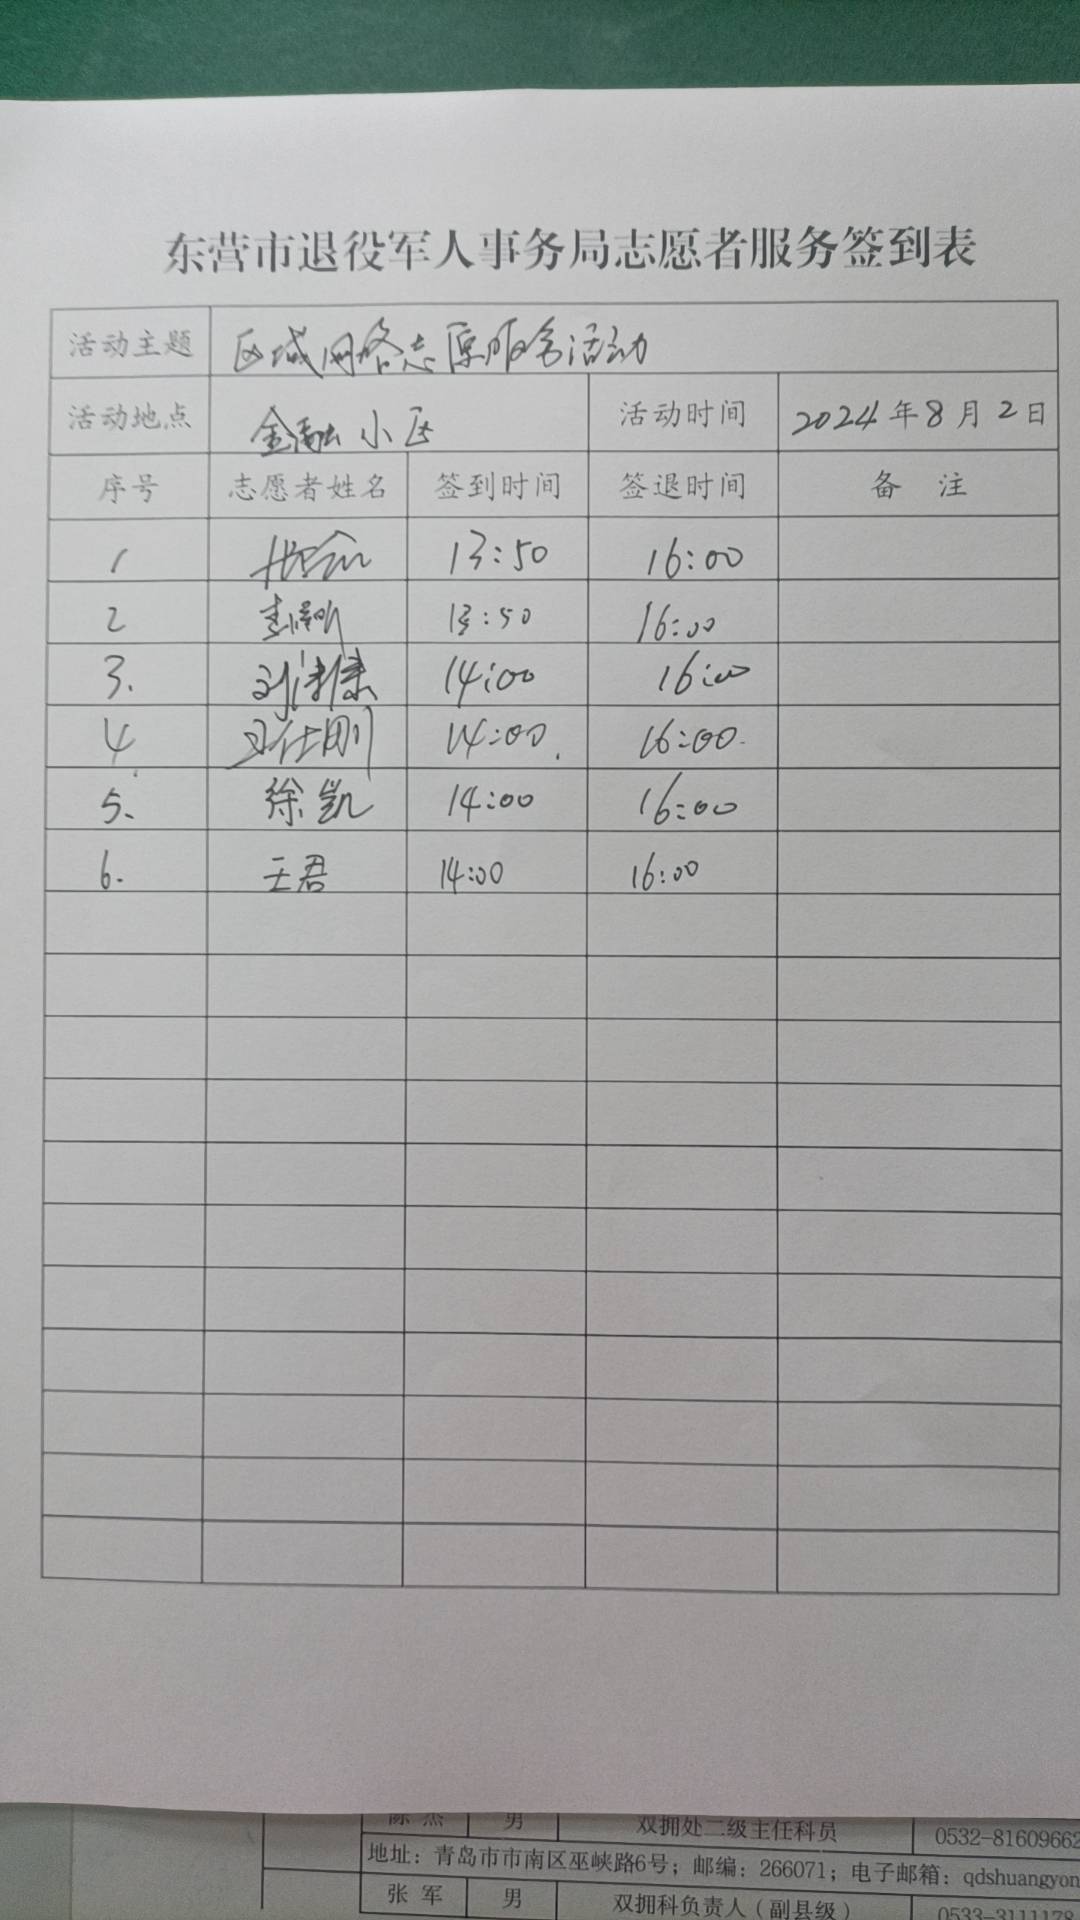 东营市退役军人事务局志愿者服务签到表
活动主题 区域网格志愿服务活动
活动地点 金融小区 活动时间 2024年8月2日
序号 志愿者姓名 签到时间 签退时间 备 注
1 13:50 16:00
2 13:50 16:00
3. 14:00 16:00
4 14:00. 16:00.
5. 徐凯 14:00 16:00
6. 王君 14:00 16:00
陈 杰 男 双拥处二级主任科员 0532-81609662
地址：青岛市市南区巫峡路6号；邮编：266071；电子邮箱：qdshuangyon
张 军 男 双拥科负责人（副县级） 0533-3111178